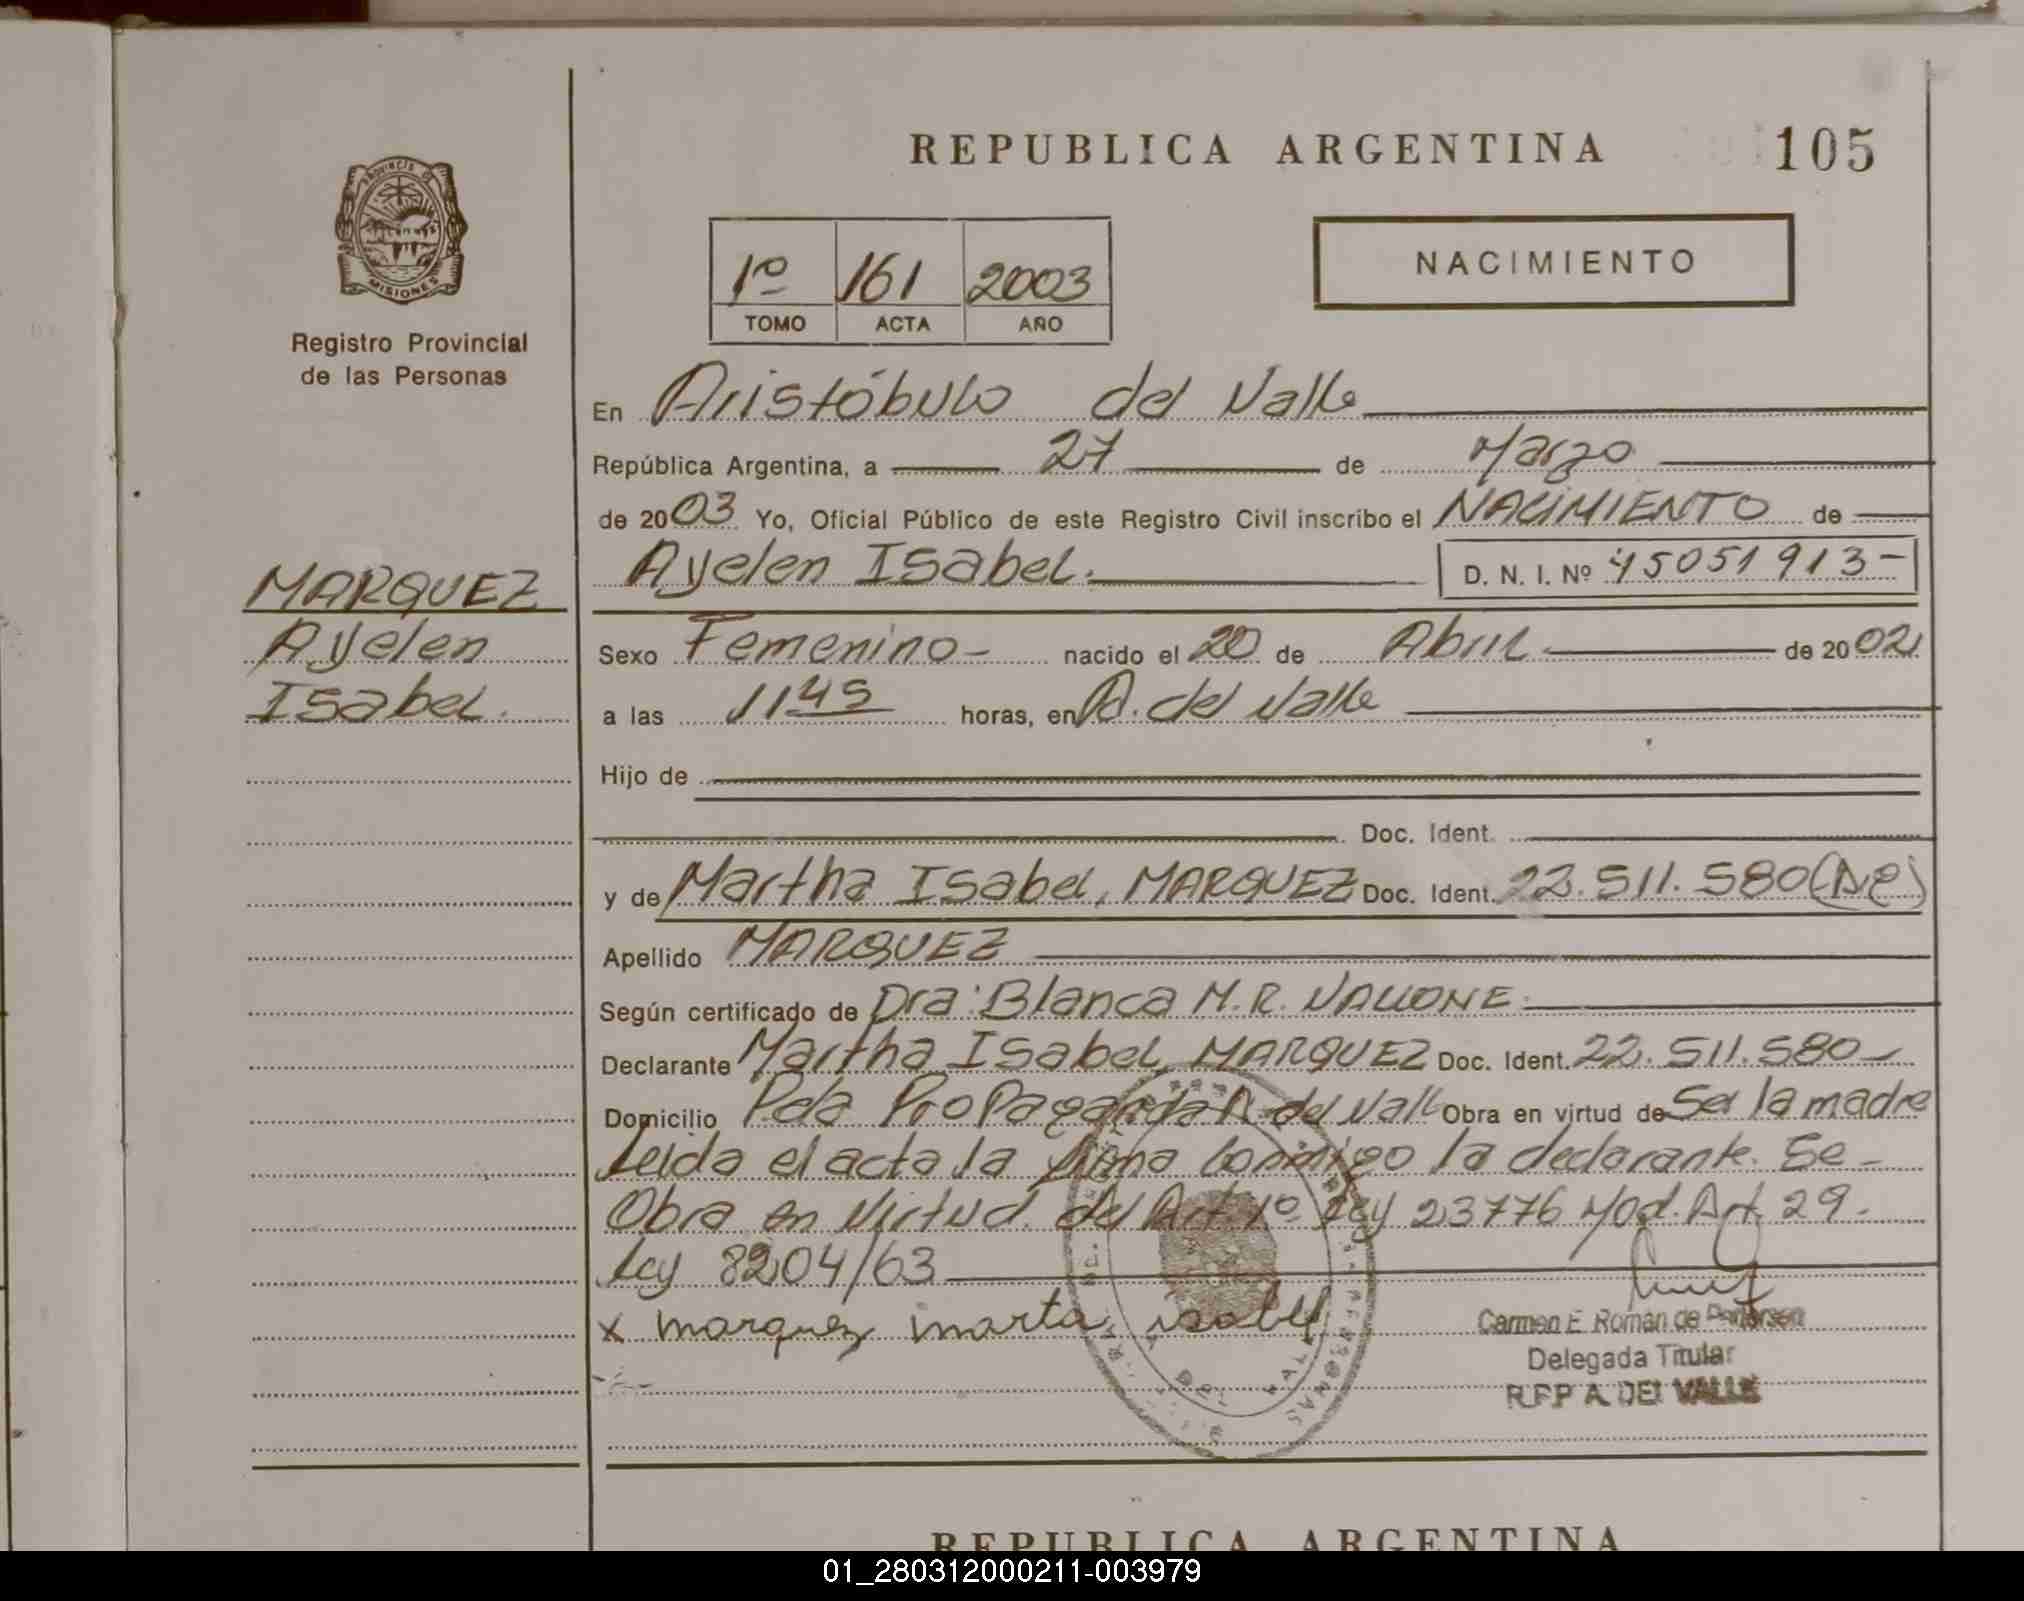 REPUBLICA ARGENTINA 105
PROVINCIA DE
MISIONES
Registro Provincial
de las Personas
1º 161 2003
TOMO ACTA AÑO
NACIMIENTO
MARQUEZ
Ayelen
Isabel.
En Aristóbulo del Valle
República Argentina, a 27 de Marzo
de 2003 Yo, Oficial Público de este Registro Civil inscribo el NACIMIENTO de
Ayelen Isabel. D. N. I. Nº 45051913-
Sexo Femenino- nacido el 20 de Abril de 2002
a las 11 45 horas, en A. del Valle
Hijo de
Doc. Ident.
y de Martha Isabel, MARQUEZ Doc. Ident. 22.511.580
Apellido MARQUEZ
Según certificado de Dra. Blanca M.R. VALLONE.
Declarante Martha Isabel, MARQUEZ Doc. Ident. 22.511.580-
Domicilio Pda Propaganda A. del Valle Obra en virtud de Ser la madre
Leida el acta la firma conmigo la declarante. Se-
Obra en Virtud del Art. 1º Ley 23776 Mod. Art. 29.
Ley 8204/63
x marquez marta isabel
Carmen E. Román de Pedersen
Delegada Titular
R.P.P A. DEL VALLE
REPUBLICA ARGENTINA
01_280312000211-003979